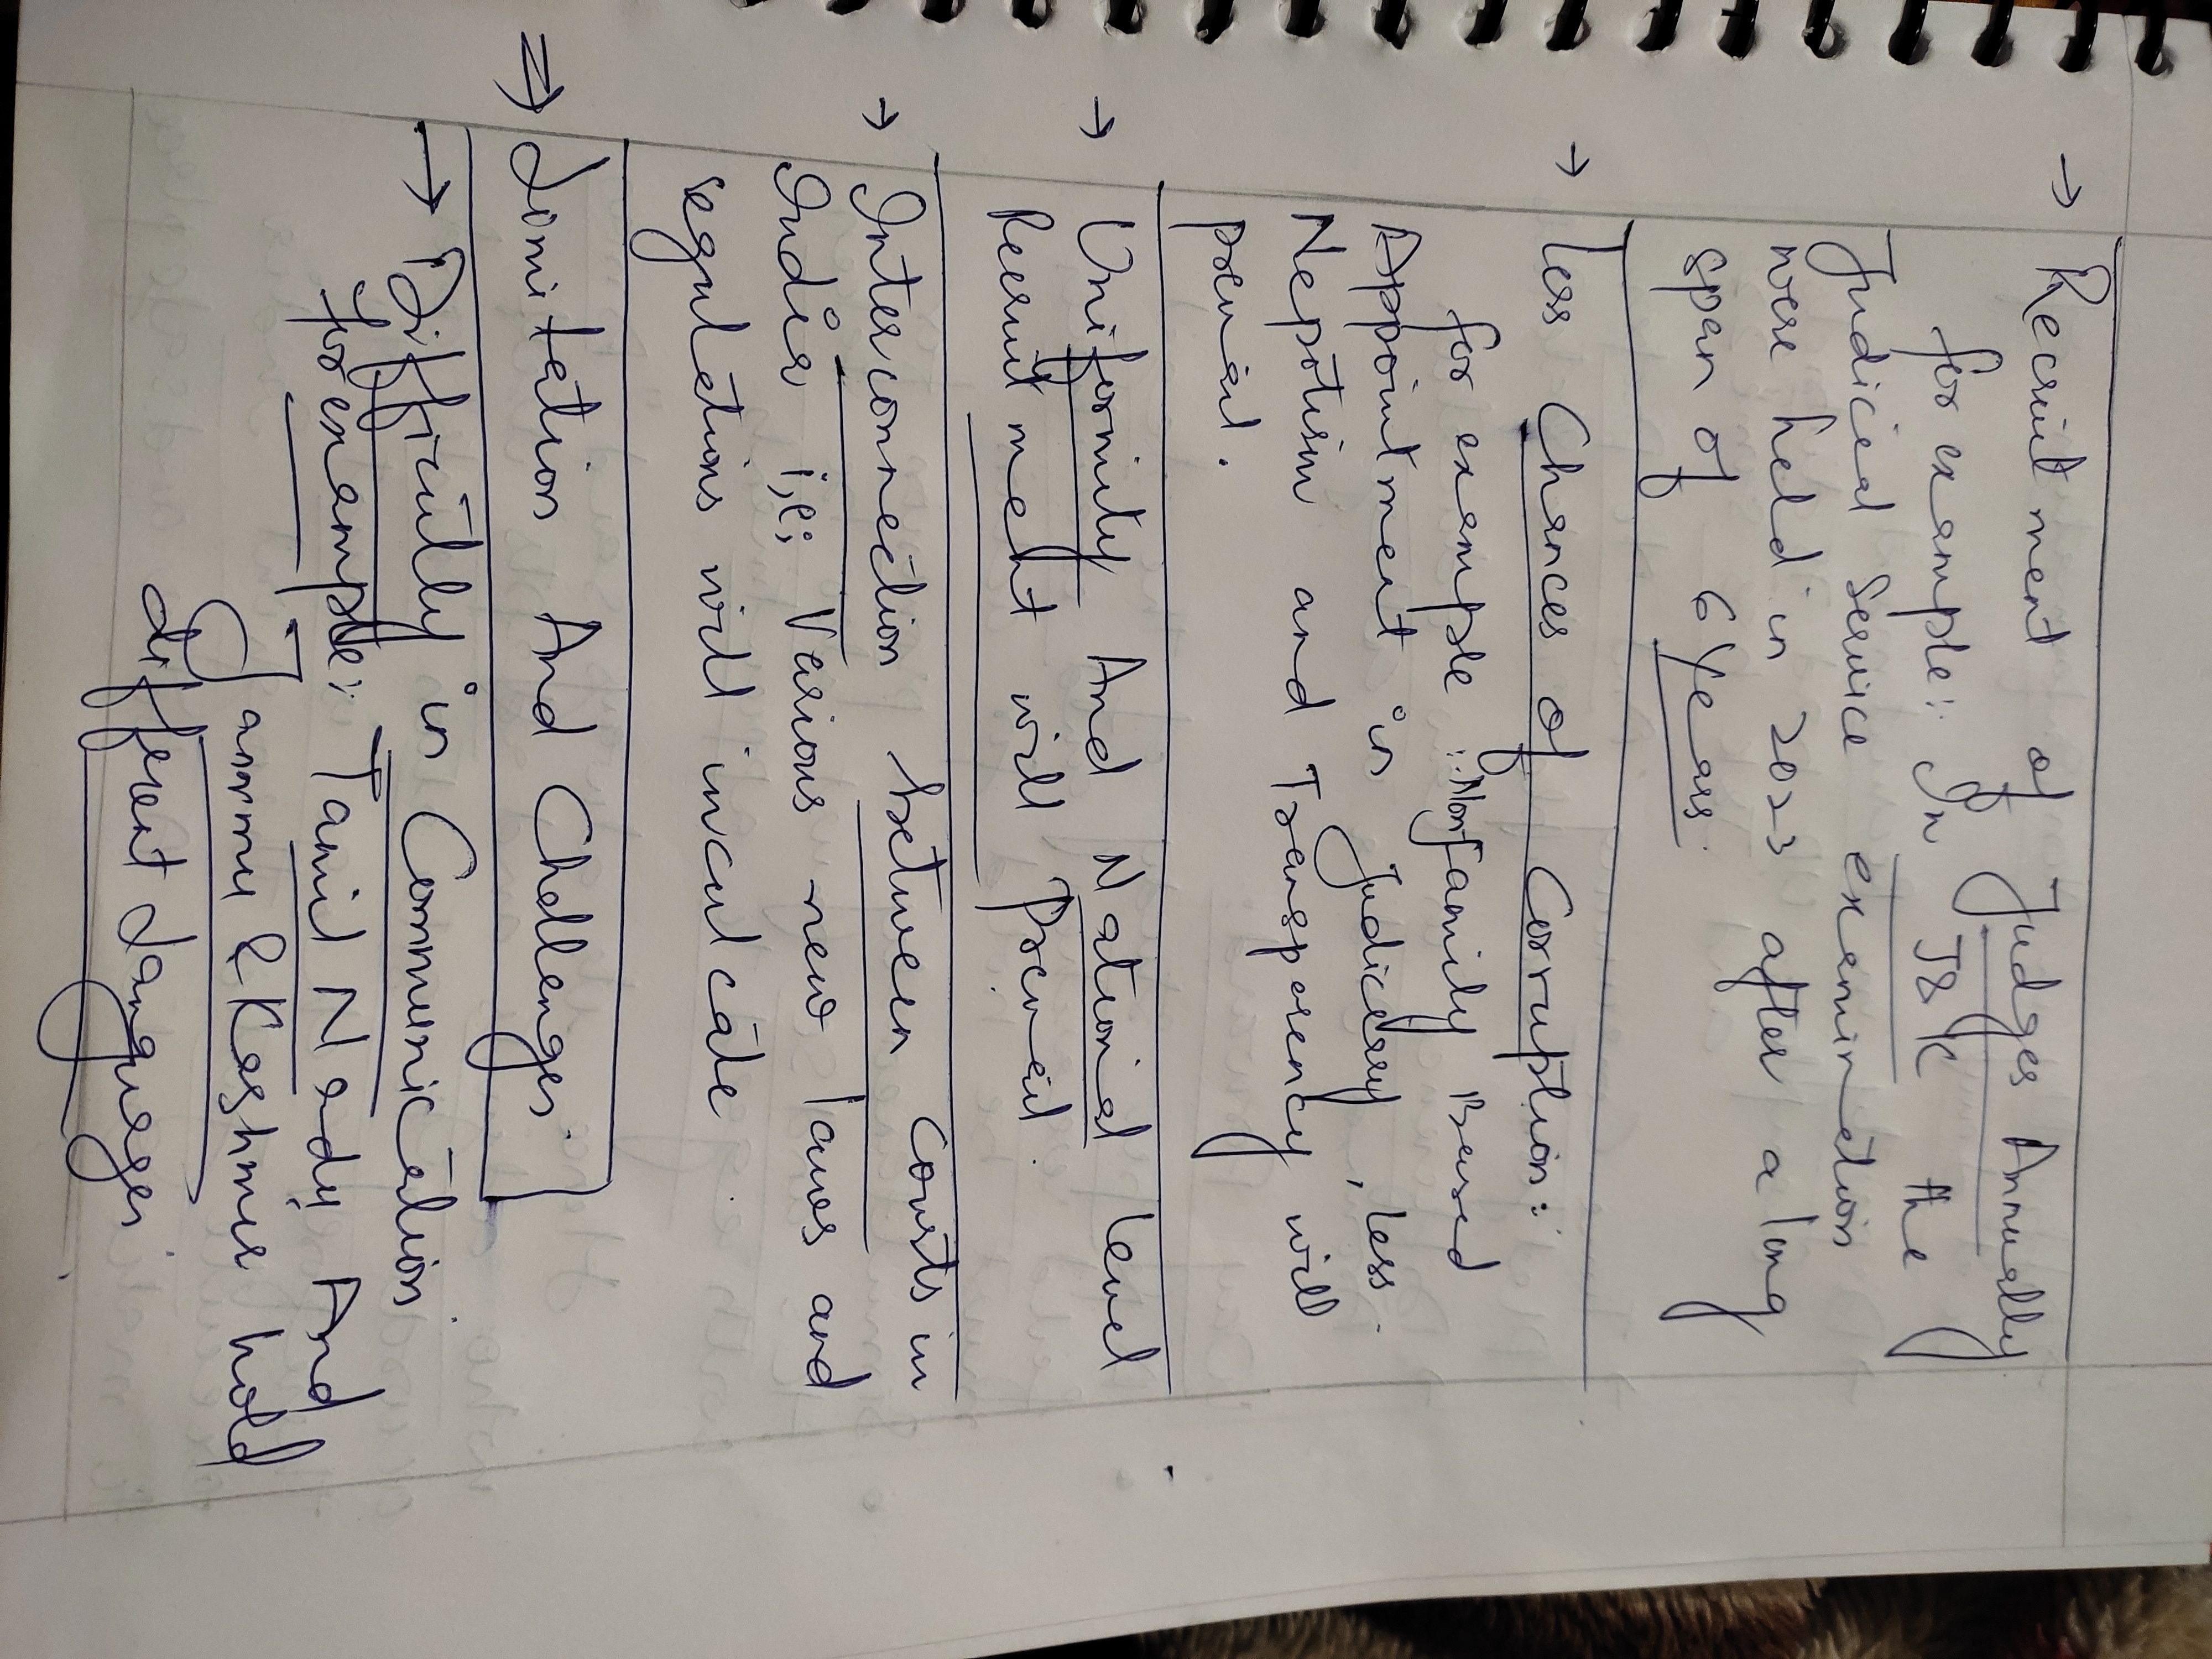 → Recruitment of Judges Annually
for example:- In J&K the
Judicial Service examination
were held in 2023 after a long
span of 6 Years.
→ Less Chances of Corruption:
for example :- Non family Based
Appointment in Judiciary, less
Nepotism and Transperency will
prevail.
→ Uniformity And National level
Recruitment will Prevail.
→ Interconnection between Courts in
India i,e; Various new laws and
regulations will inculcate.
⇒ Limitation And Challenges.
→ Difficulty in Communication.
for example:- Tamil Nadu And
Jammu & Kashmir hold
different Languages.